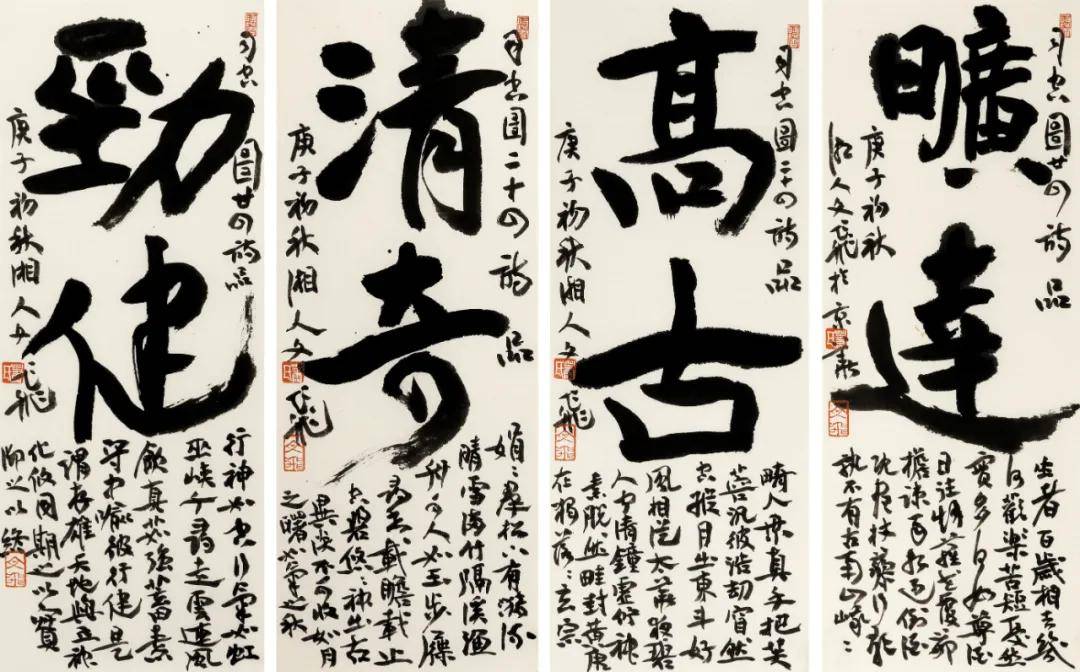 曠達
司空圖廿四詩品
庚子初秋
湘人文飛於京華
生者百歲相去幾
何歡樂苦短憂愁
實多何如尊酒
日往烟蘿花覆茆
檐疎雨相過倒酒
既盡杖藜行歌
孰不有古南山峩〻
高古
司空圖二十四詩品
庚子初秋湘人文飛
畸人乘真手把芙
蓉汎彼浩劫窅然
空蹤月出東斗好
風相從太華夜碧
人聞清鐘虛佇神
素脫然畦封黃唐
在獨落〻玄宗
清奇
司空圖二十四詩品
庚子初秋湘人文飛
娟〻群松下有漪流
晴雪滿竹隔溪漁
舟可人如玉步屧
尋幽載瞻載止
空碧悠〻神出古
異淡不可收如月
之曙如氣之秋
勁健
司空圖廿四詩品
庚子初秋湘人文飛
行神如空行氣如虹
巫峽千尋走雲連風
飲真茹強蓄素
守中喻彼行健是
謂存雄天地與立神
化攸同期之以實
御之以終